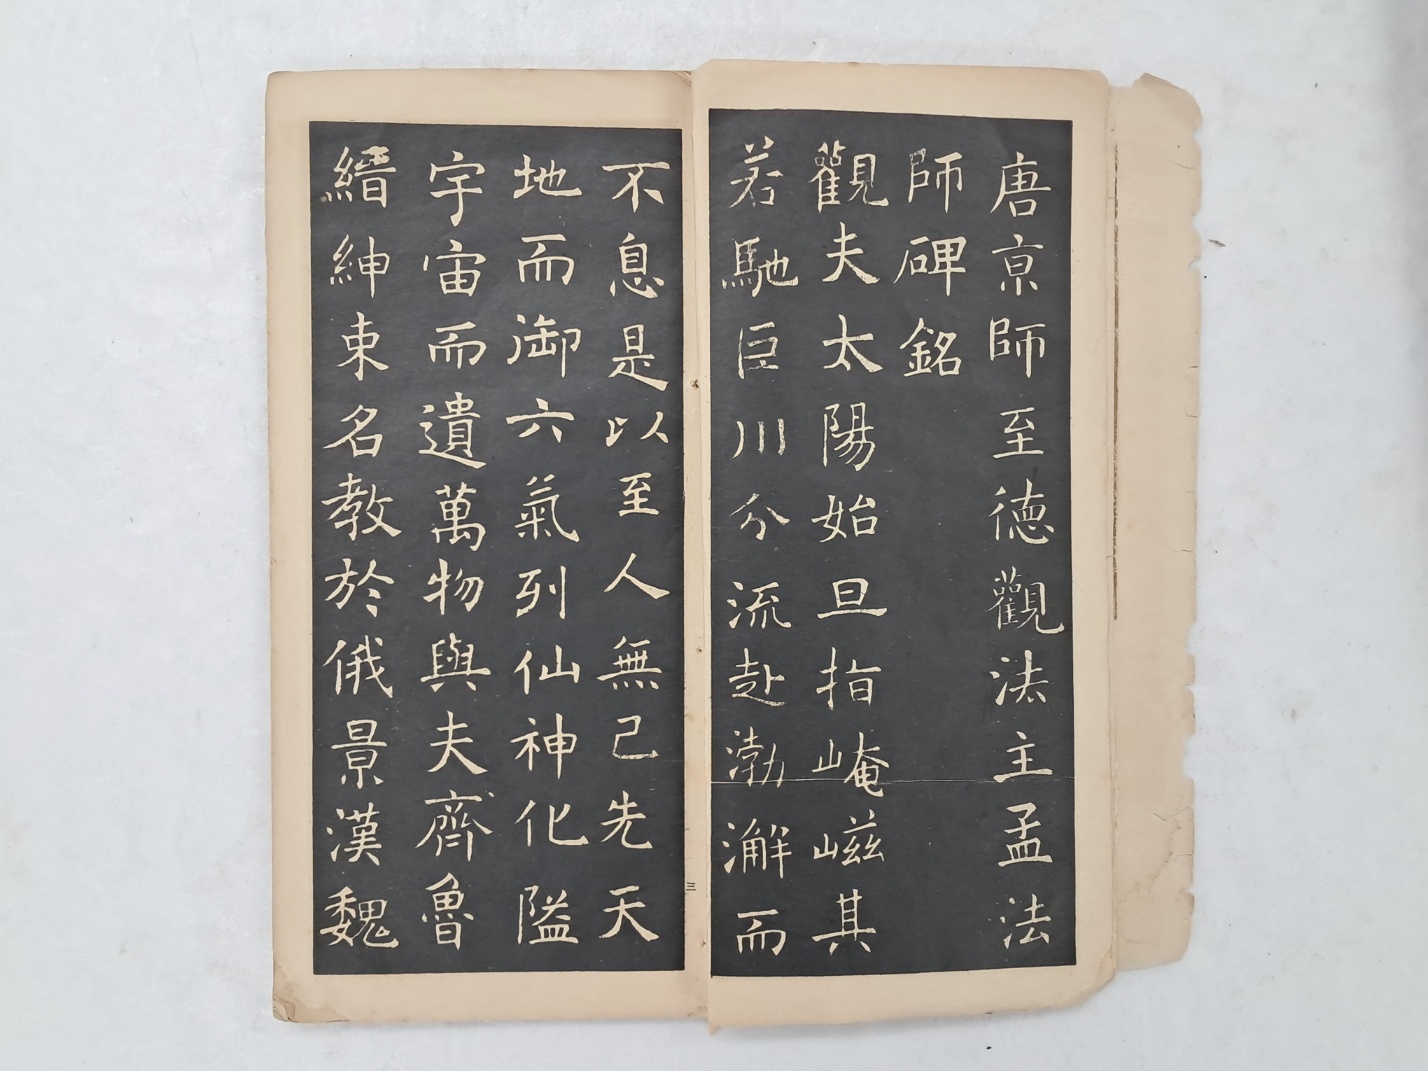 唐京師至德觀法主孟法
師碑銘
觀夫太陽始旦指崦嵫其
若馳巨川分流赴渤澥而
不息是以至人無己先天
地而御六氣列仙神化隘
宇宙而遺萬物與夫齊魯
縉紳束名教於俄景漢魏
三